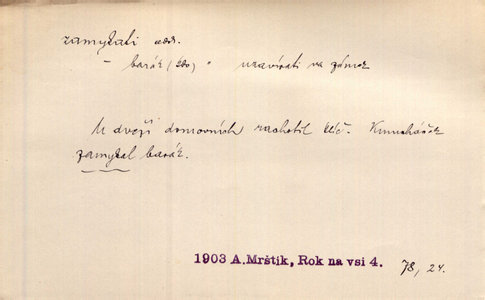 zamykati ned.
– barák (kdo) " uzavírati na zámek
U dveří domovních rachotil klíč.
zamykal barák.
1903 A.Mrštík, Rok na vsi 4. 78, 24.